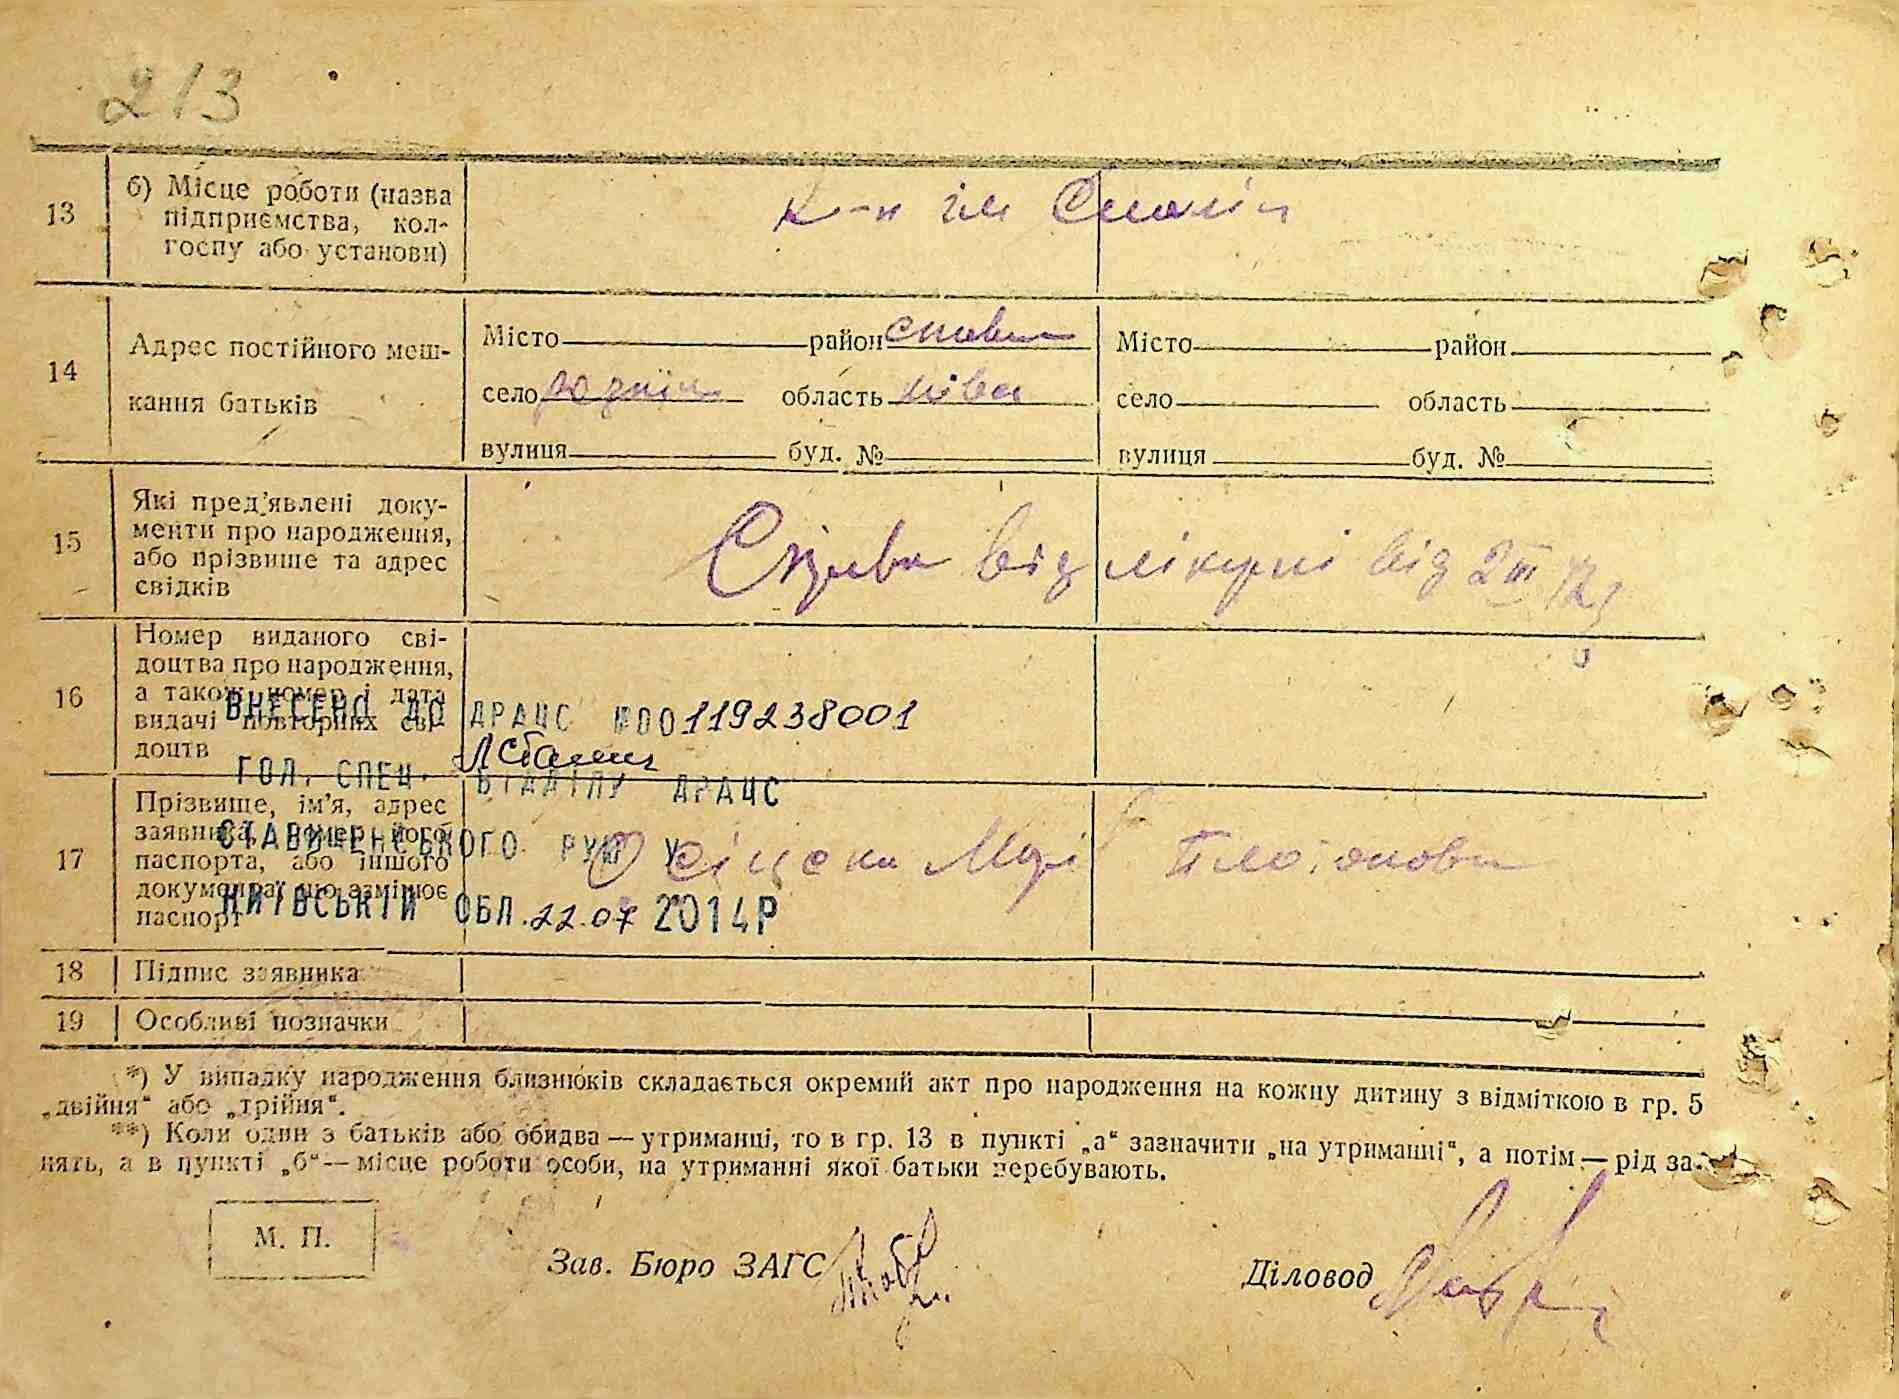 213
13
б) Місце роботи (назва
підприємства, кол-
госпу або установи)
к-п ім
14
Адрес постійного меш-
кання батьків
Місто район
село область
вулиця буд. №
Місто район
село область
вулиця буд. №
15
Які пред'явлені доку-
менти про народження,
або прізвище та адрес
свідків
від лікурні від 2 III
16
Номер виданого сві-
доцтва про народження,
а також номер і дата
видачі повторних сві-
доцтв
ВНЕСЕНО ДО ДРАЦС №00119238001
ГОЛ. СПЕЦ. ВІДДІЛУ ДРАЦС
17
Прізвище, ім'я, адрес
заявника, номер його
паспорта, або іншого
документа, що заміняє
паспорт
СТАВИЩЕНСЬКОГО РУЮ У
КИЇВСЬКІЙ ОБЛ. 22.07 2014Р
18
Підпис заявника
19
Особливі позначки
*) У випадку народження близнюків складається окремий акт про народження на кожну дитину з відміткою в гр. 5
„двійня“ або „трійня“.
**) Коли один з батьків або обидва — утриманці, то в гр. 13 в пункті „а“ зазначити „на утриманні“, а потім — рід за-
нять, а в пункті „б“ — місце роботи особи, на утриманні якої батьки перебувають.
М. П.
Зав. Бюро ЗАГС
Діловод